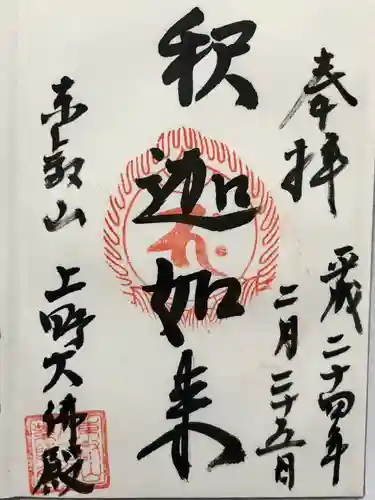 奉拝
平成二十四年
二月二十五日
釈迦如来
東叡山
上野大佛殿